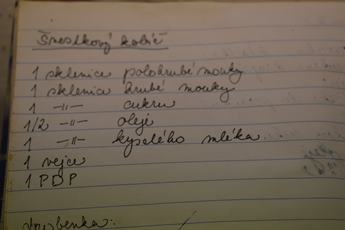 Švestkový koláč
1 sklenice polohrubé mouky
1 sklenice hrubé mouky
1 -"- cukru
1/2 -"- oleje
1 -"- kyselého mléka
1 vejce
1 PDP